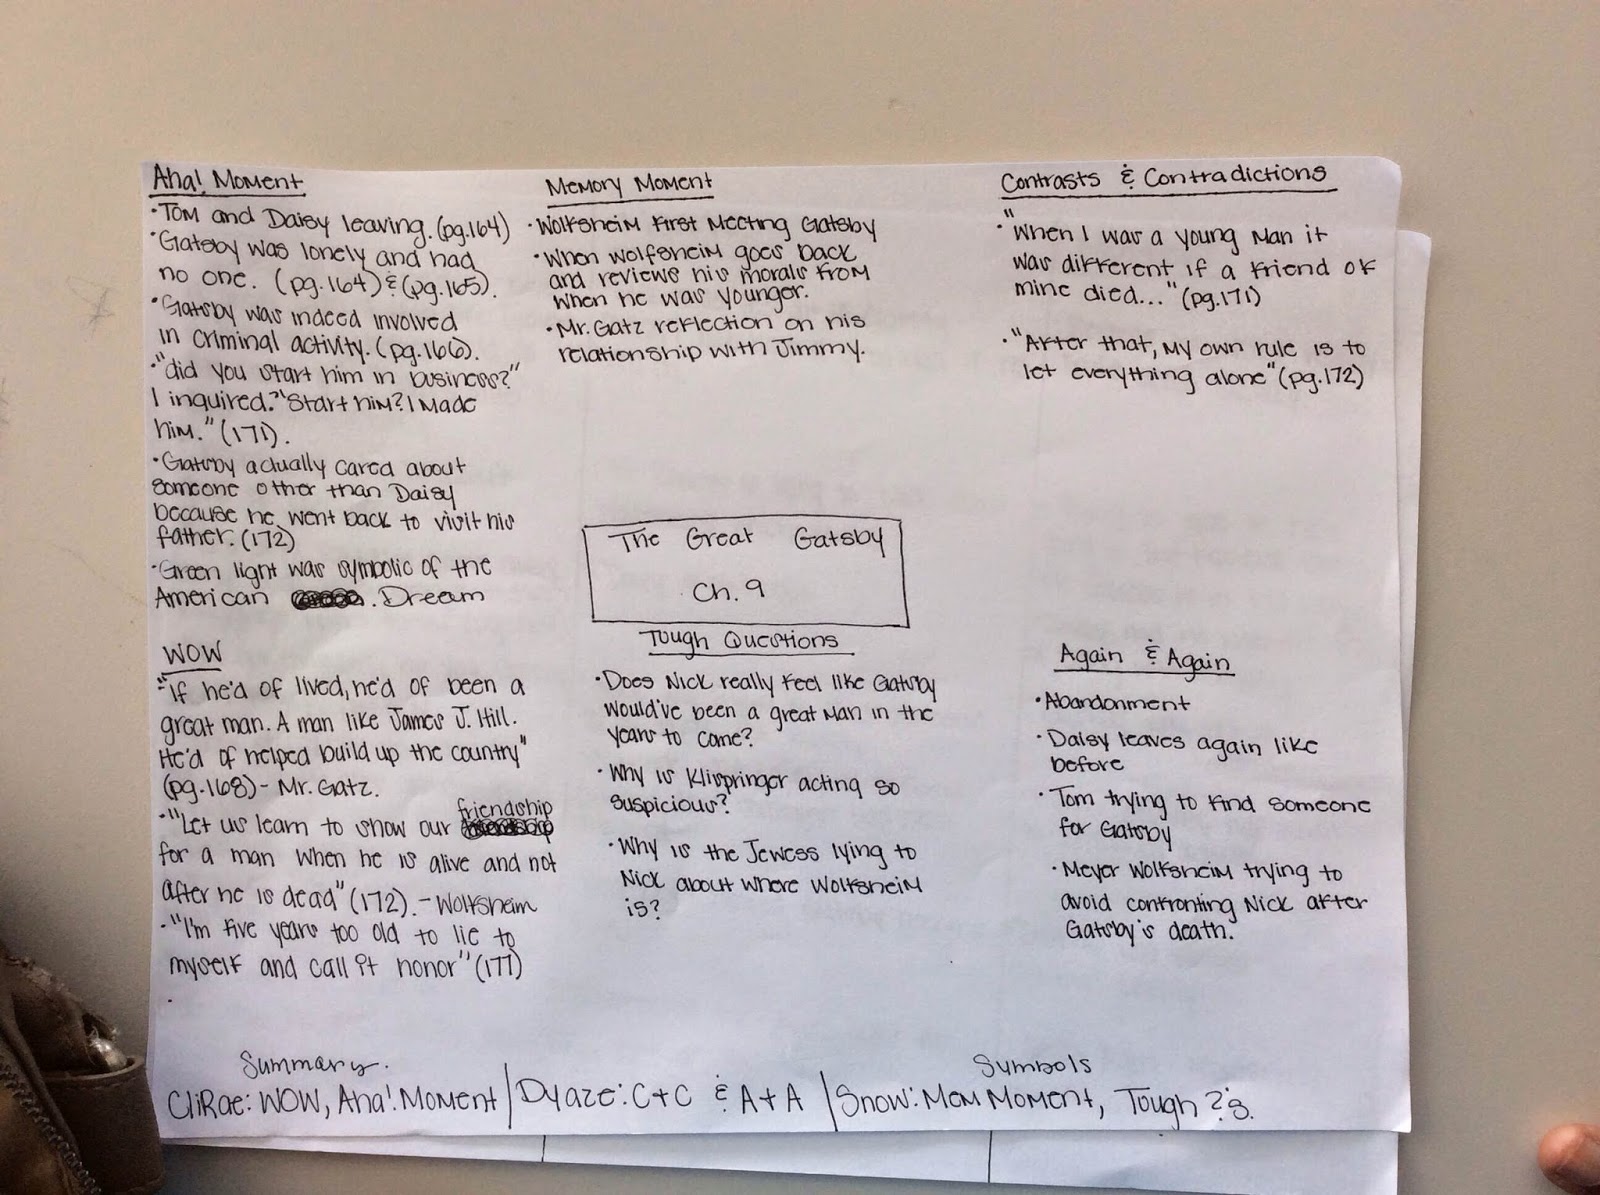 Aha! Moment
• Tom and Daisy leaving. (pg.164)
• Gatsby was lonely and had
no one. (pg.164) & (pg.165).
• Gatsby was indeed involved
in criminal activity. (pg.166).
• "did you start him in business?"
I inquired. "Start him? I made
him." (171).
• Gatsby actually cared about
someone other than Daisy
because he went back to visit his
father. (172)
• Green light was symbolic of the
American . Dream
Memory Moment
• Wolfsheim first meeting Gatsby
• When wolfsheim goes back
and reviews his morals from
when he was younger.
• Mr. Gatz reflection on his
relationship with Jimmy.
Contrasts & Contradictions
• "When I was a young man it
was different if a friend of
mine died..." (pg.171)
• "After that, my own rule is to
let everything alone" (pg.172)
The Great Gatsby
Ch. 9
WOW
• "If he'd of lived, he'd of been a
great man. A man like James J. Hill.
He'd of helped build up the country"
(pg.168) - Mr. Gatz.
• "Let us learn to show our friendship
for a man when he is alive and not
after he is dead" (172). - Wolfsheim
• "I'm five years too old to lie to
myself and call it honor" (177)
Tough Questions
• Does Nick really feel like Gatsby
would've been a great man in the
years to come?
• Why is Klispringer acting so
suspicious?
• Why is the Jewess lying to
Nick about where Wolfsheim
is?
Again & Again
• Abandonment
• Daisy leaves again like
before
• Tom trying to find someone
for Gatsby
• Meyer Wolfsheim trying to
avoid confronting Nick after
Gatsby's death.
Summary.
Symbols
CliRae: WOW, Aha! Moment | Dyaze: C+C & A+A | Snow: Mem Moment, Tough ?'s.